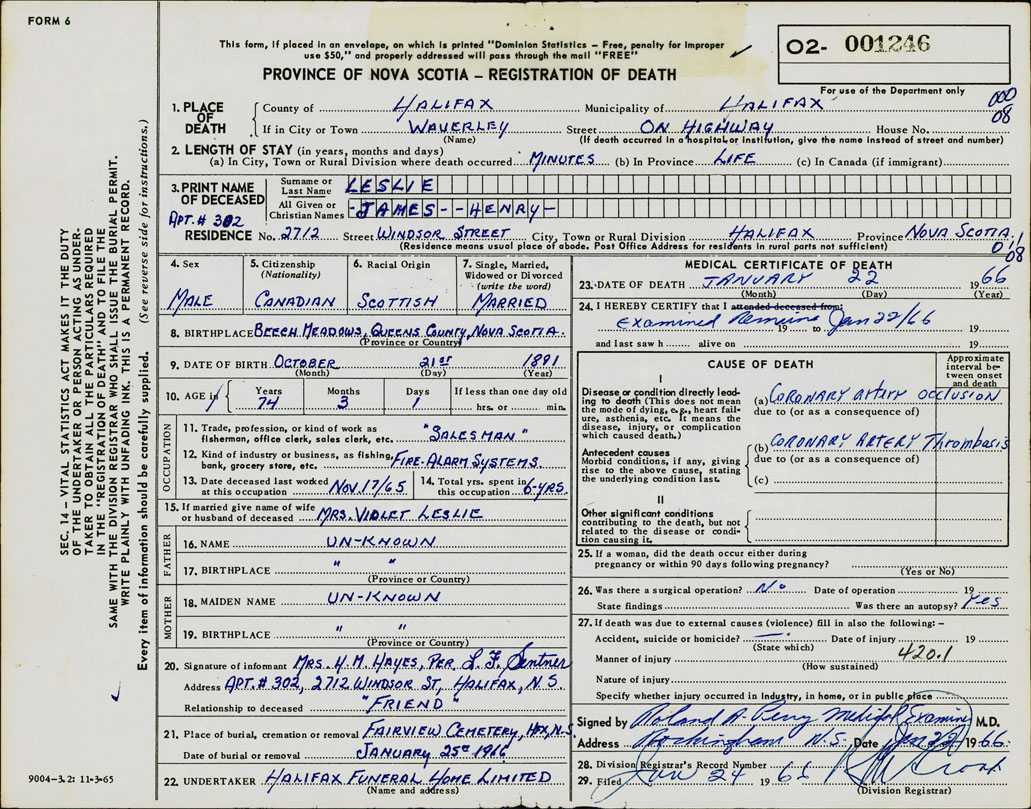 FORM 6
This form, if placed in an envelope, on which is printed "Dominion Statistics – Free, penalty for improper
use $50," and properly addressed will pass through the mail "FREE"
O2- 001246
For use of the Department only
PROVINCE OF NOVA SCOTIA – REGISTRATION OF DEATH
000
08
1. PLACE OF DEATH
County of HALIFAX Municipality of HALIFAX
If in City or Town WAVERLEY Street ON HIGHWAY House No.
(Name) (If death occurred in a hospital or institution, give the name instead of street and number)
2. LENGTH OF STAY (in years, months and days)
(a) In City, Town or Rural Division where death occurred MINUTES (b) In Province LIFE (c) In Canada (if immigrant)
3. PRINT NAME OF DECEASED
Surname or Last Name LESLIE
All Given or Christian Names -JAMES--HENRY-
APT.# 302
RESIDENCE No. 2712 Street WINDSOR STREET City, Town or Rural Division HALIFAX Province NOVA SCOTIA
(Residence means usual place of abode. Post Office Address for residents in rural parts not sufficient)
08
4. Sex
MALE
5. Citizenship
(Nationality)
CANADIAN
6. Racial Origin
SCOTTISH
7. Single, Married,
Widowed or Divorced
(write the word)
MARRIED
8. BIRTHPLACE BEECH MEADOWS, QUEENS COUNTY, NOVA SCOTIA.
(Province or County)
9. DATE OF BIRTH OCTOBER 21ST 1891
(Month) (Day) (Year)
10. AGE in
Years 74
Months 3
Days 1
If less than one day old
hrs. or min.
OCCUPATION
11. Trade, profession, or kind of work as
fisherman, office clerk, sales clerk, etc. "SALESMAN"
12. Kind of industry or business, as fishing,
bank, grocery store, etc. FIRE-ALARM SYSTEMS.
13. Date deceased last worked
at this occupation NOV. 17/65
14. Total yrs. spent in
this occupation 6-YRS.
15. If married give name of wife
or husband of deceased MRS. VIOLET LESLIE
FATHER
16. NAME UN-KNOWN
17. BIRTHPLACE " "
(Province or Country)
MOTHER
18. MAIDEN NAME UN-KNOWN
19. BIRTHPLACE " "
(Province or Country)
20. Signature of informant MRS. H.M. HAYES, PER. L. F. Sentner
Address APT.# 302, 2712 WINDSOR ST, HALIFAX, N.S.
Relationship to deceased "FRIEND"
21. Place of burial, cremation or removal FAIRVIEW CEMETERY, HFX, N.S.
Date of burial or removal JANUARY 25th 1966
22. UNDERTAKER HALIFAX FUNERAL HOME LIMITED
(Name and address)
MEDICAL CERTIFICATE OF DEATH
23. DATE OF DEATH JANUARY 22 1966
(Month) (Day) (Year)
24. I HEREBY CERTIFY that I attended deceased from:
Examined Remains 19 to Jan 22/66 19
and last saw h alive on 19
CAUSE OF DEATH
Approximate
interval be-
tween onset
and death
I
Disease or condition directly lead-
ing to death (This does not mean
the mode of dying, e.g., heart fail-
ure, asthenia, etc. It means the
disease, injury, or complication
which caused death.)
(a) CORONARY ARTERY OCCLUSION
due to (or as a consequence of)
Antecedent causes
Morbid conditions, if any, giving
rise to the above cause, stating
the underlying condition last.
(b) CORONARY ARTERY Thrombosis
due to (or as a consequence of)
(c)
II
Other significant conditions
contributing to the death, but not
related to the disease or condi-
tion causing it.
25. If a woman, did the death occur either during
pregnancy or within 90 days following pregnancy?
(Yes or No)
26. Was there a surgical operation? No Date of operation 19
State findings Was there an autopsy? Yes
27. If death was due to external causes (violence) fill in also the following: –
Accident, suicide or homicide? — Date of injury 19
(State which)
420.1
Manner of injury
(How sustained)
Nature of injury
Specify whether injury occurred in Industry, in home, or in public place
Signed by Roland A. Perry Medical Examiner M.D.
Address Rockingham N.S. Date Jan 22 1966
28. Division Registrar's Record Number
29. Filed Jan 24 1966
(Division Registrar)
SEC. 14 – VITAL STATISTICS ACT MAKES IT THE DUTY
OF THE UNDERTAKER OR PERSON ACTING AS UNDER-
TAKER TO OBTAIN ALL THE PARTICULARS REQUIRED
IN THE "REGISTRATION OF DEATH" AND TO FILE THE
SAME WITH THE DIVISION REGISTRAR WHO SHALL ISSUE THE BURIAL PERMIT.
WRITE PLAINLY WITH UNFADING INK. THIS IS A PERMANENT RECORD.
Every item of information should be carefully supplied. (See reverse side for instructions.)
9004-3.2: 11-3-65